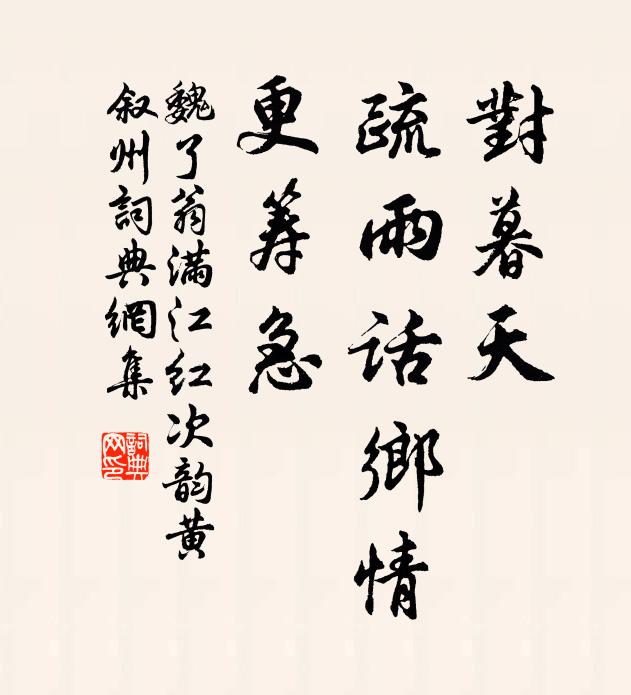 對暮天
疏雨話鄉情
更筹急
魏了翁满江红次韵黄
叙州詞典網集
詞典网印